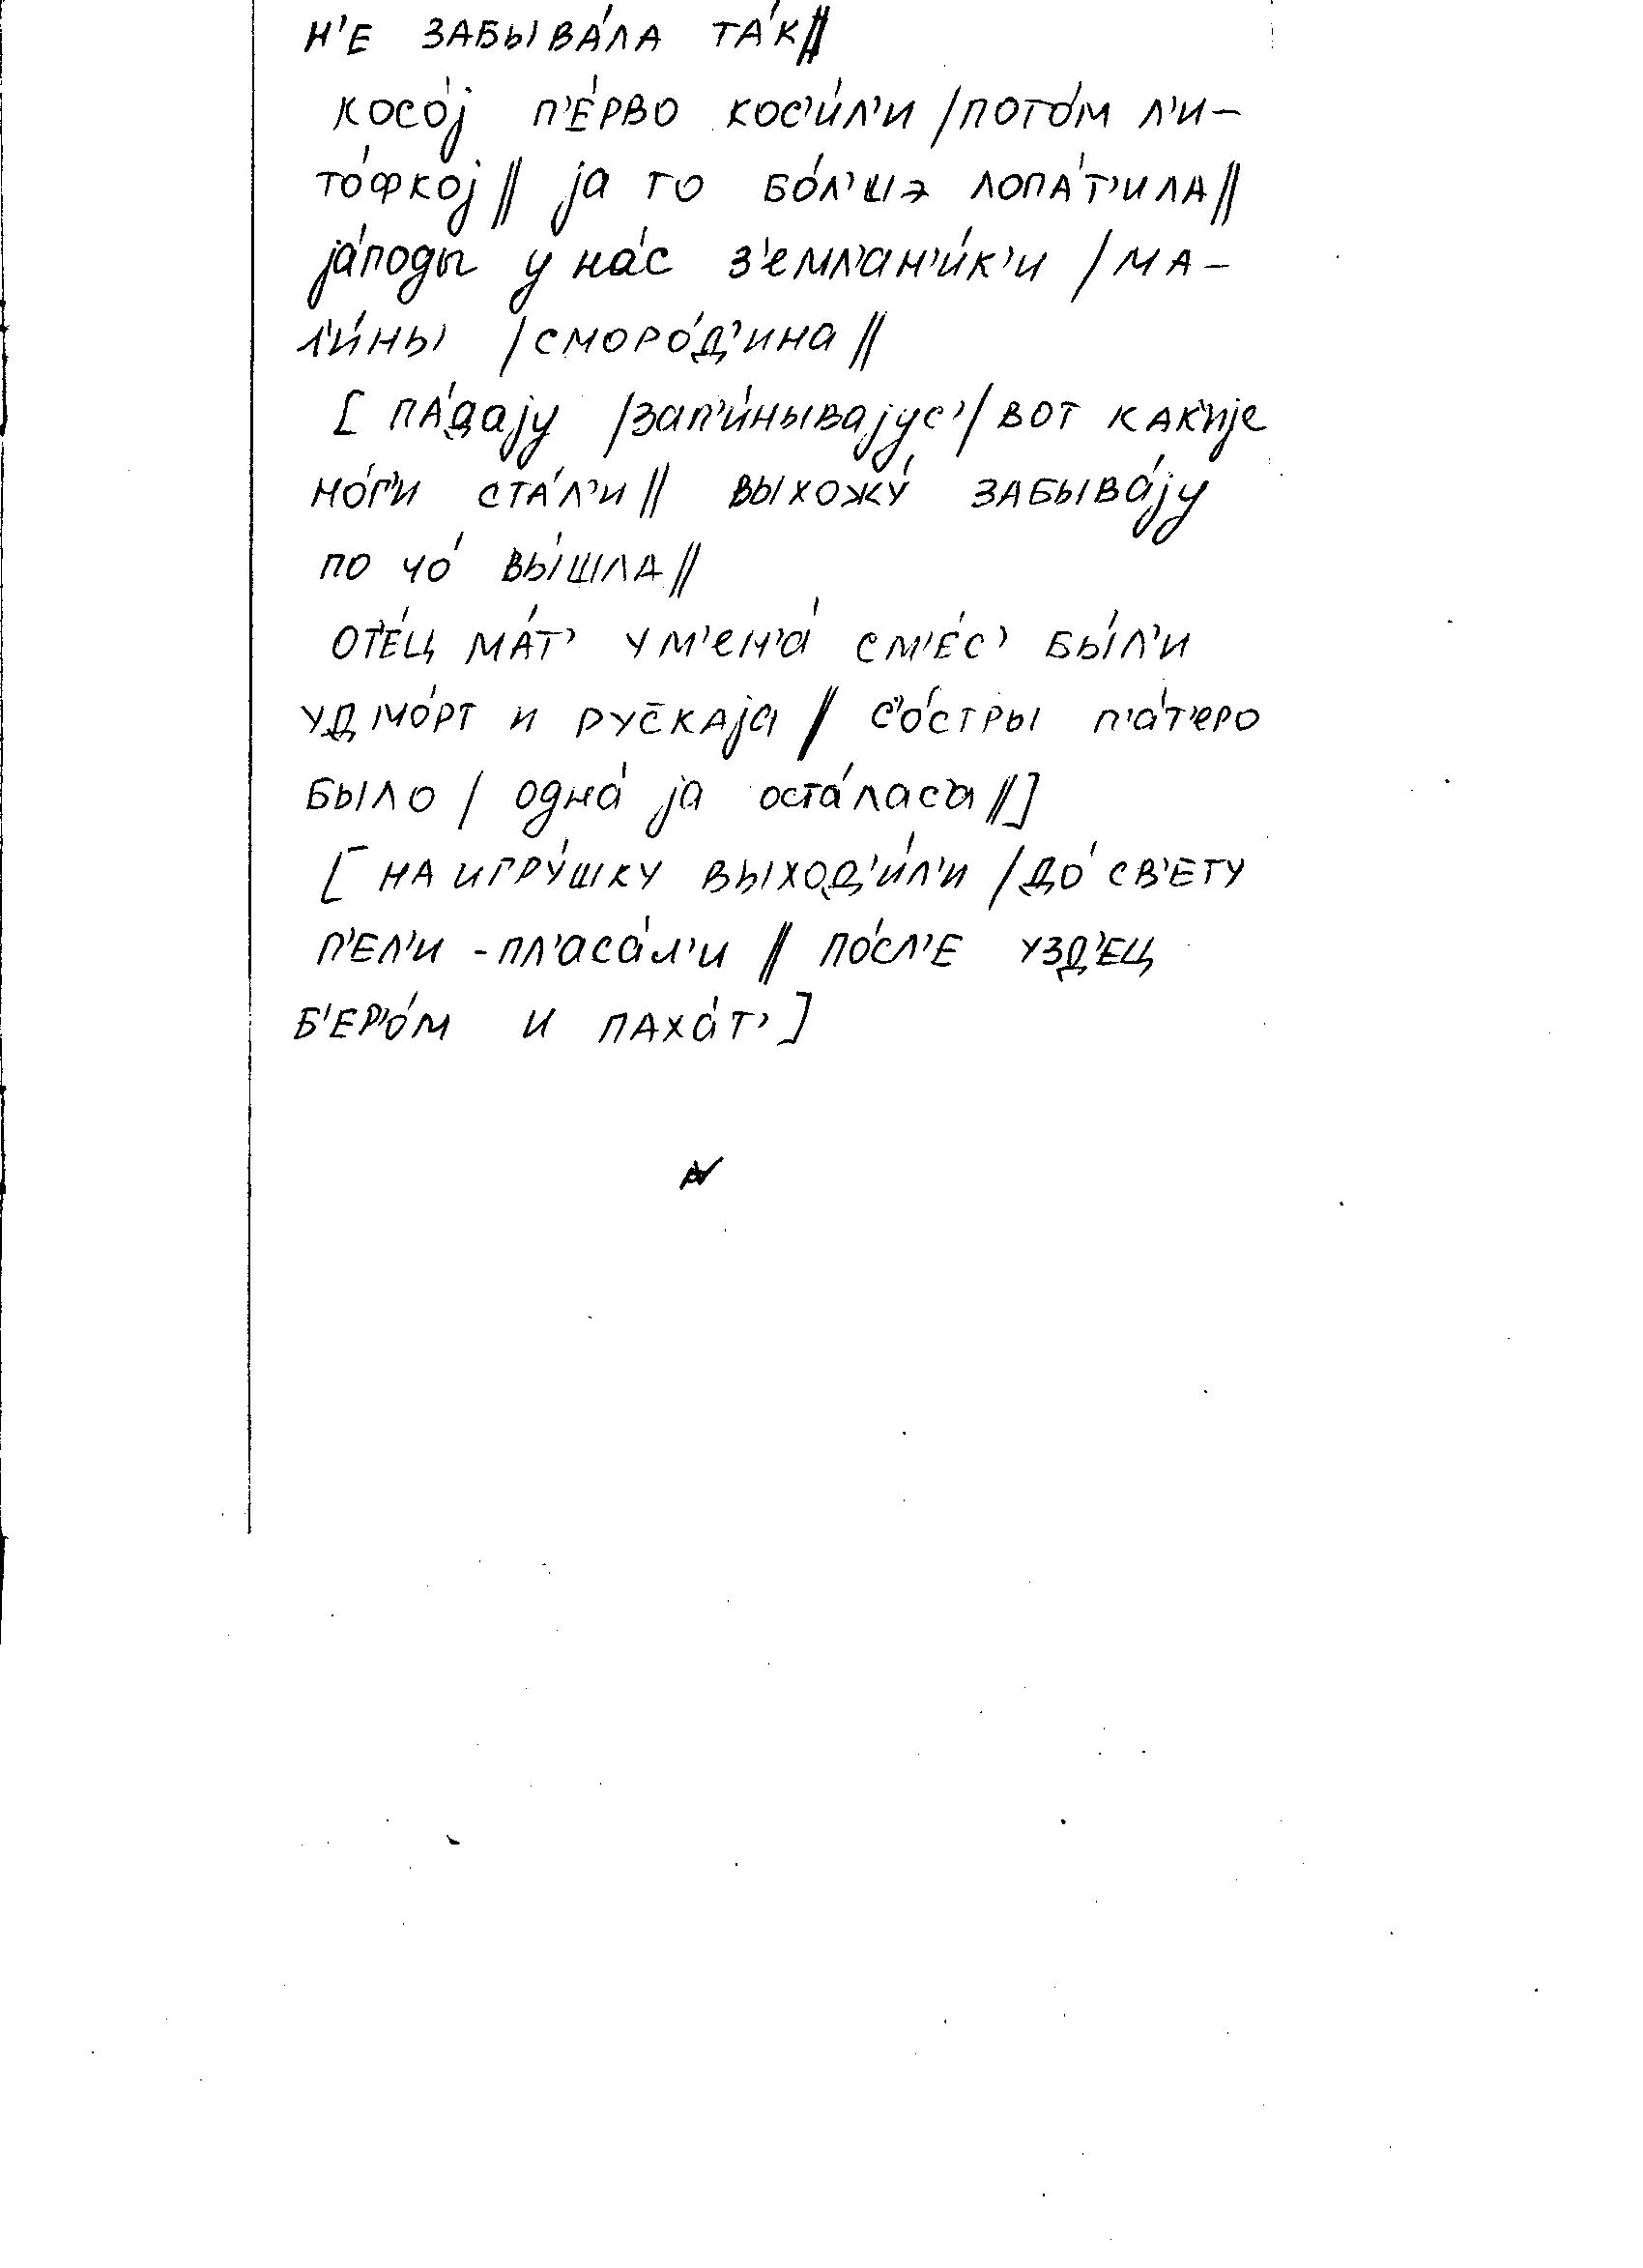 Н'Е ЗАБЫВА́ЛА ТА́К//
КОСО́j П'Е́РВО КОС'И́Л'И /ПОТО́М Л'И-
ТО́ФКОj// jа ТО БО́Л'ШЭ ЛОПА́Т'ИЛА//
jа́годы у на́с З'емл'ан'и́к'и /МА-
Л'И́НЫ /СМОРО́Д'ИНа//
[ ПА́даjу /зап'и́нываjус'/ ВОТ КАК'иjе
НО́Г'И СТА́Л'И// ВЫХОЖУ́ ЗАБЫВа́jу
ПО ЧО́ ВЫ́ШЛА//
ОТ'Е́Ц МА́Т' У М'ЕН'а́ СМ'Е́С' БЫ́Л'И
УДМО́РТ И РУ́С̄КАjа // С'О́СТРЫ П'а́Т'ЕРО
БЫЛО / одна́ jа оста́лас'а//]
[ НА ИГРУ́ШКУ ВЫХОД'И́Л'И /ДО́ СВ'ЕТУ
П'ЕЛ'И - ПЛ'аса́л'и // ПО́СЛ'Е УЗД'ЕЦ
Б'ЕР'О́М И ПАХа́Т']